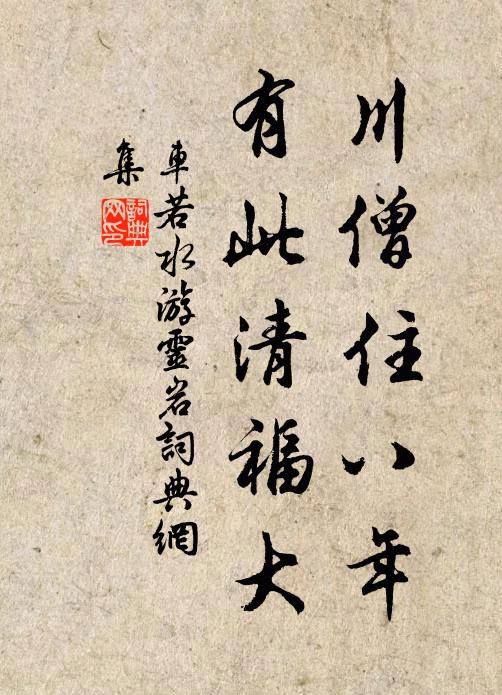 川僧住八年
有此清福大
車若水游靈岩詞典網
集
詞典網印